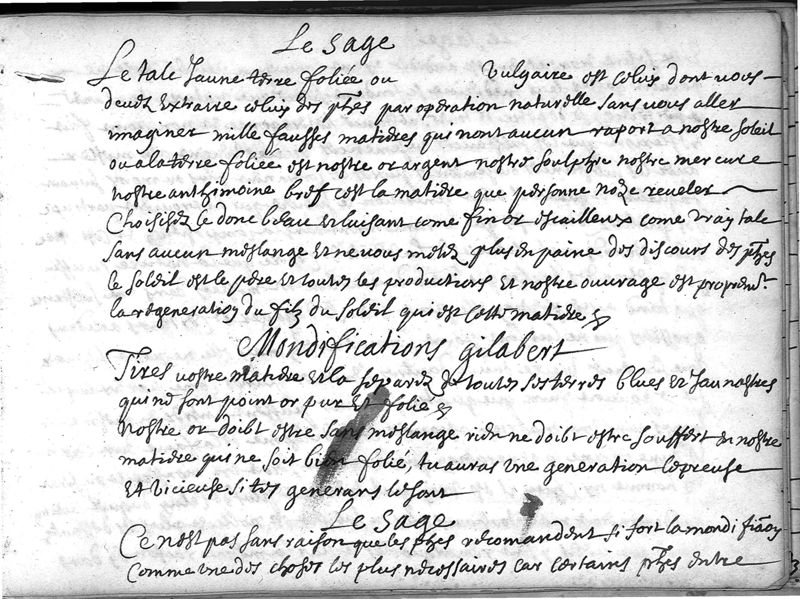 Le Sage
Le talc Jaune terre foliée ou vulgaire est celuy dont vous
devez Extraire celuy des phes par operation naturelle sans vous aller
imaginer mille fausses matieres qui nont aucun raport a nostre soleil
ou a la terre foliée est nostre or argent nostre soulphre nostre mercure
nostre anthimoine bref cest la matiere que personne noze reveler
Choisisez le donc beau et luisant come fin or escailleux come vray talc
sans aucun meslange et ne vous metez plus en paine des discours des phes
le soleil est le pere et toutes les productions et nostre ouvrage est propremt
la regeneration du filz du soleil qui est cette matiere
Mondifications gilabert
Tires vostre matiere et la separez de toutes ses terres blues et Jaunastres
qui ne sont point or pur et folié
nostre or doibt estre sans meslange rien ne doibt estre souffert en nostre
matiere qui ne soit bien folié, tu auras une generation lepreuse
et vicieuse si tes generans le sont
Le Sage
Ce nest pas sans raison que les phes recomandent si fort la mondifiaon
comme une des choses les plus necessaires car certains phes entre